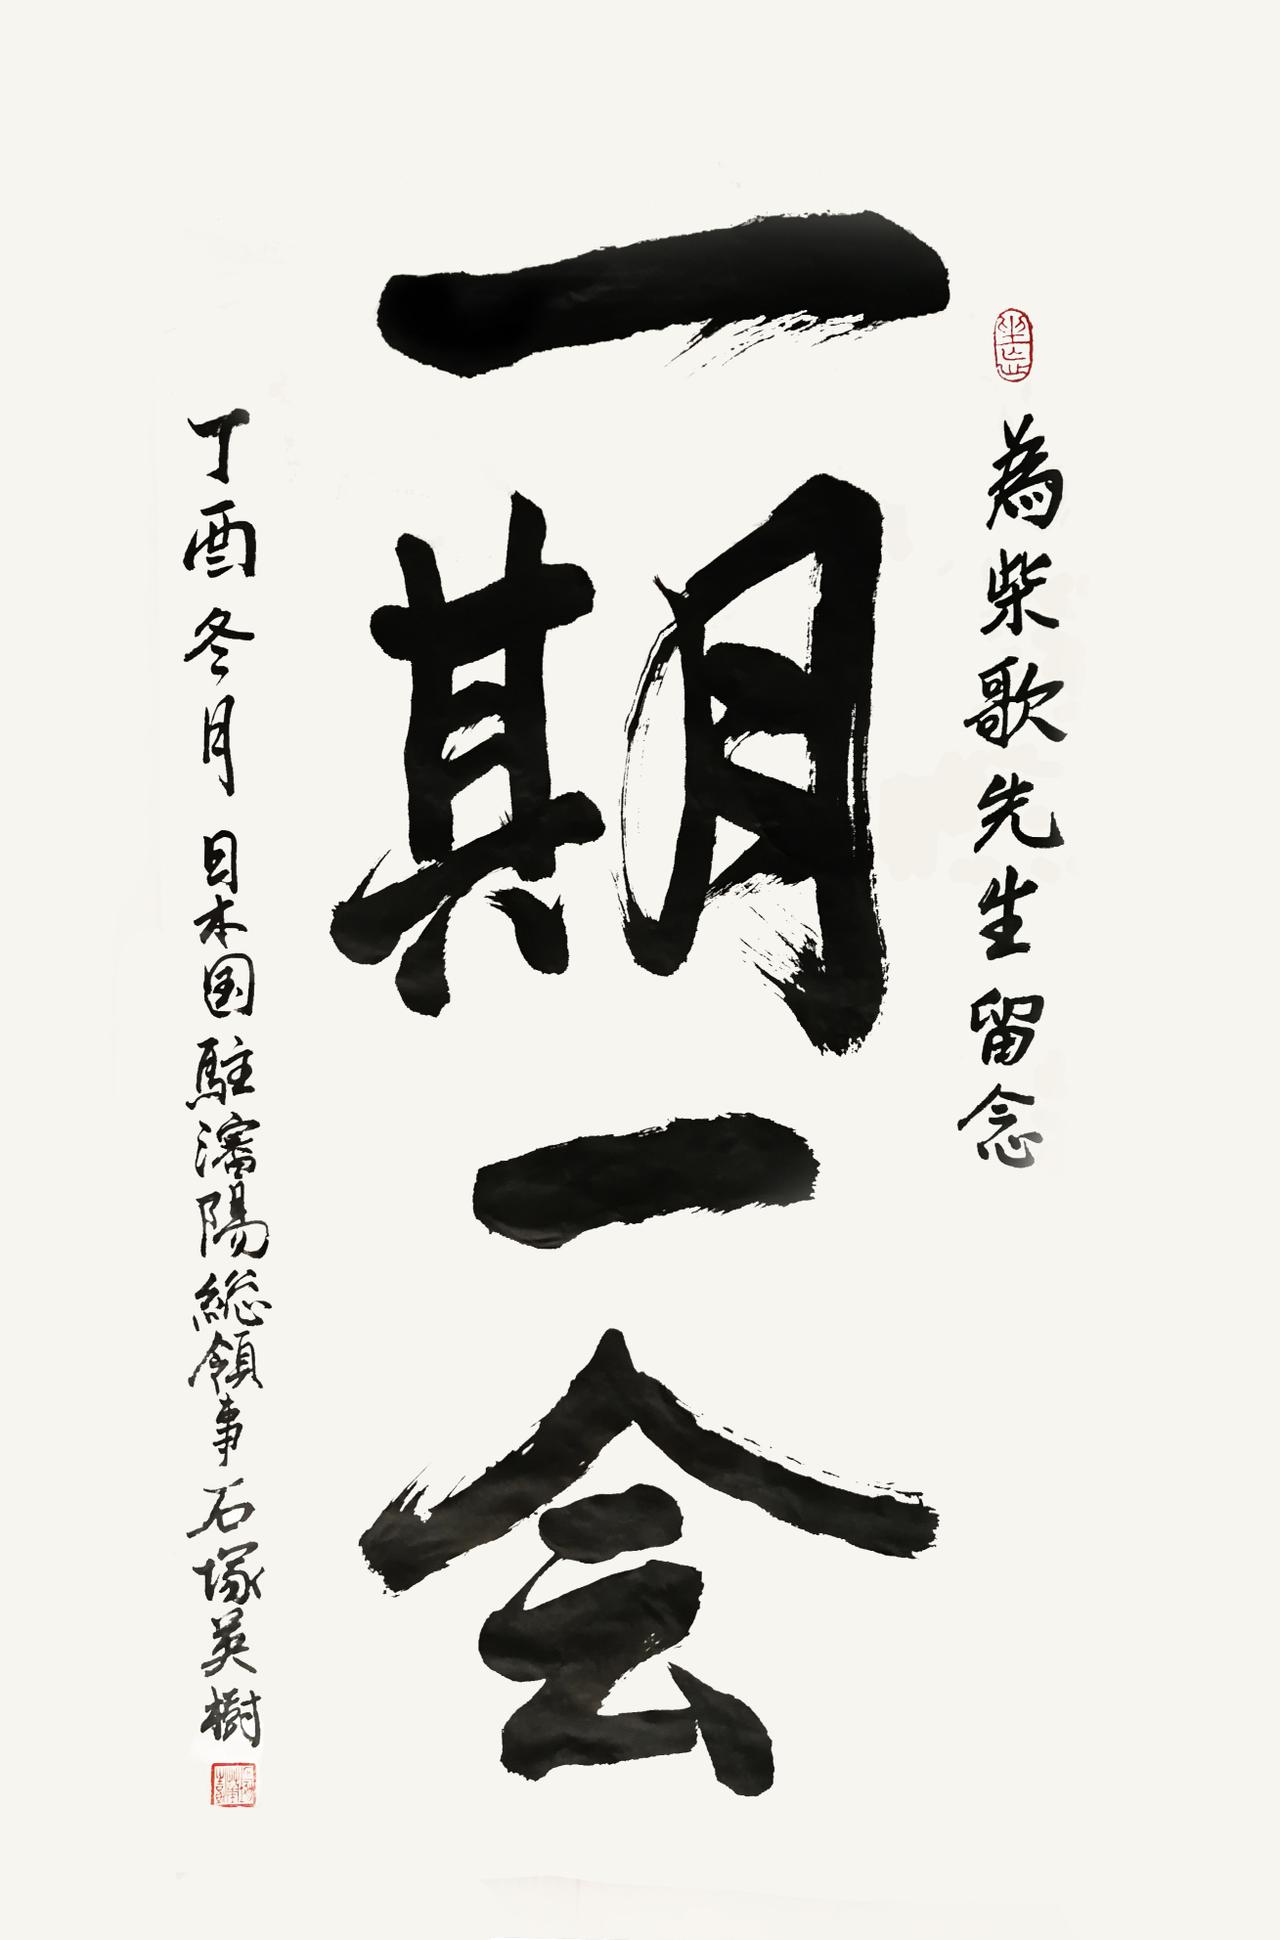 為柴歌先生留念
一期一会
丁酉冬月 日本国駐瀋陽総領事石塚英樹